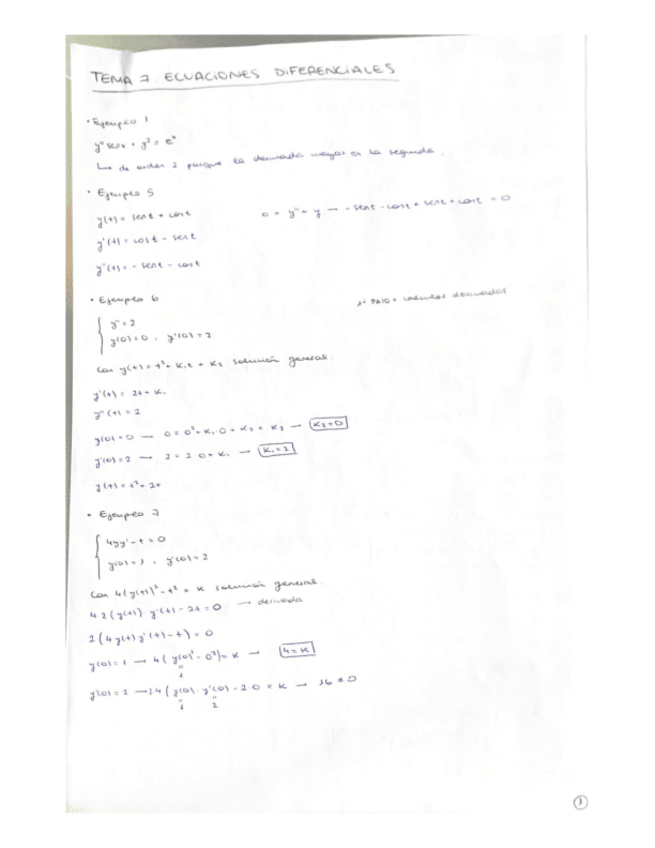 TEMA 7. ECUACIONES DIFERENCIALES
• Ejemplo 1
y'' senx + y³ = eˣ
↳ de orden 2 porque la derivada mayor es la segunda.
• Ejemplo 5
y(t) = sent + cost 0 = y'' + y → - sent - cost + sent + cost = 0
y'(t) = cost - sent
y''(t) = - sent - cost
• Ejemplo 6 1º PASO = calcular derivadas
y'' = 2
y(0) = 0, y'(0) = 2
Con y(t) = t² + K₁t + K₂ solución general.
y'(t) = 2t + K₁
y''(t) = 2
y(0) = 0 → 0 = 0² + K₁·0 + K₂ = K₂ → K₂ = 0
y'(0) = 2 → 2 = 2·0 + K₁ → K₁ = 2
y(t) = t² + 2t
• Ejemplo 7
4yy' - t = 0
y(0) = 1, y'(0) = 2
Con 4(y(t))² - t² = K solución general.
4·2(y(t))·y'(t) - 2t = 0 → derivada
2(4y(t)y'(t) - t) = 0
y(0) = 1 → 4(y(0)² - 0²) = K → 4 = K
1
y'(0) = 2 → 2·4(y(0)·y'(0) - 2·0 = K → 16 ≠ 0
1 2
1